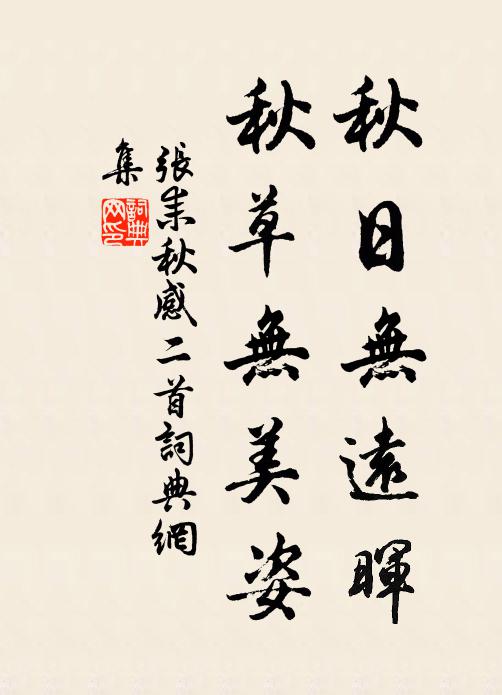 秋日無遠暉
秋草無美姿
張耒秋感二首詞典網
集
詞典網印